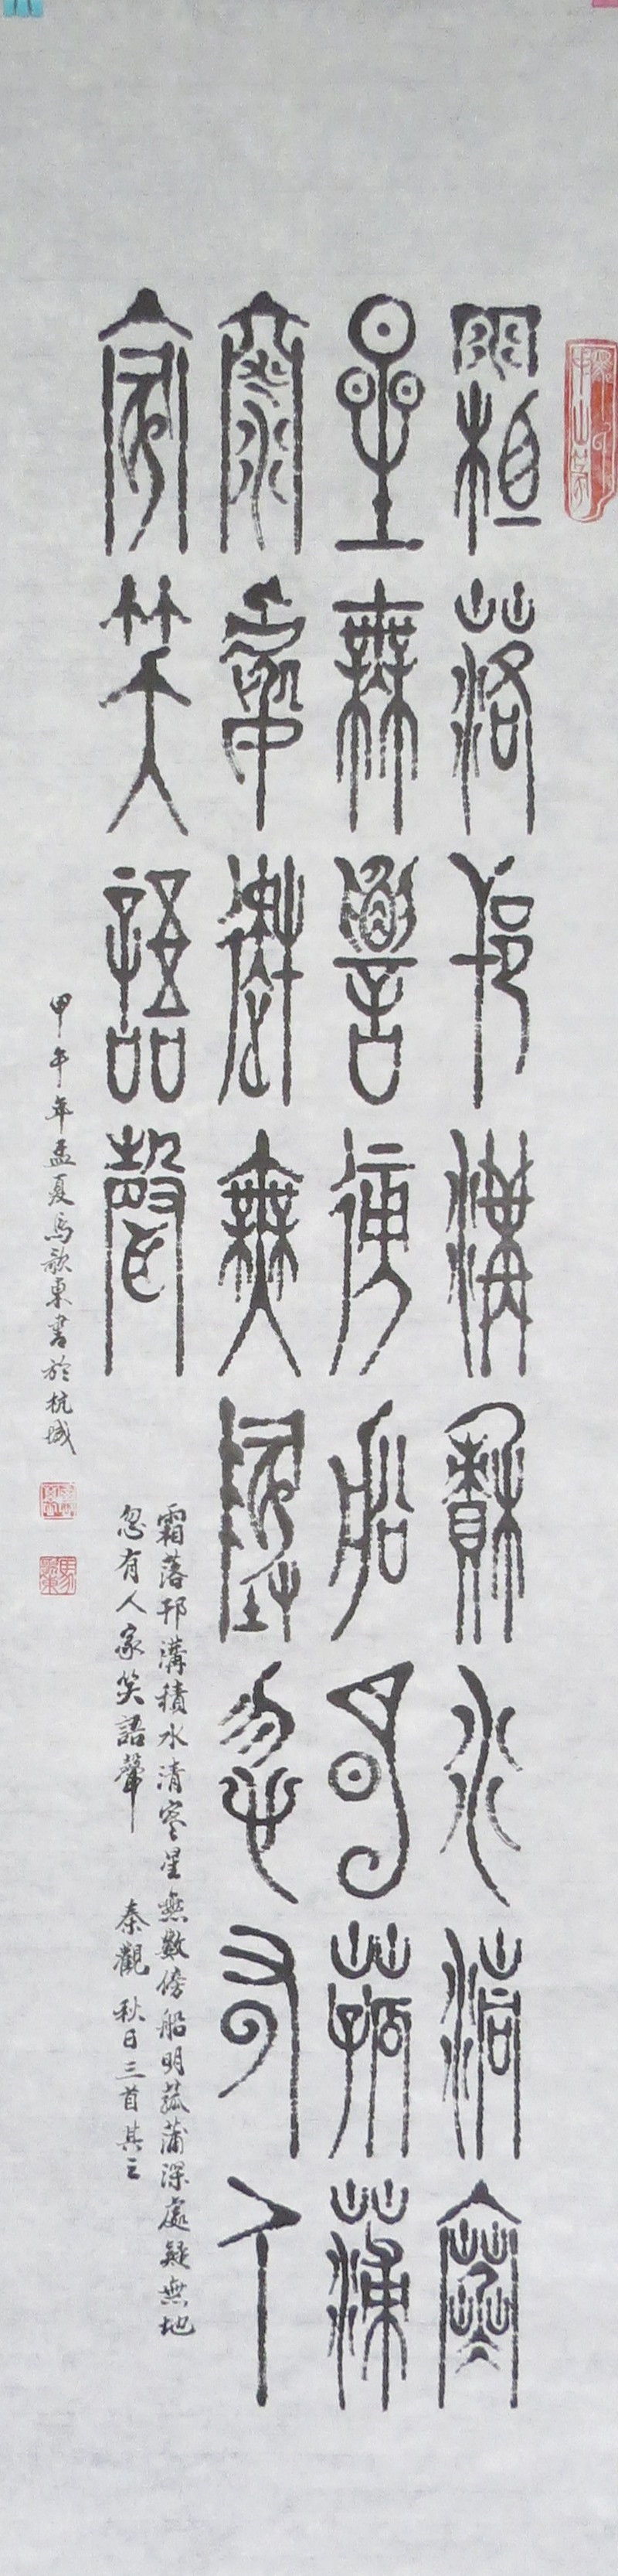 霜落邗溝積水清寒
星無數傍船明菰蒲
深處疑無地忽有人
家笑語聲
霜落邗溝積水清寒星無數傍船明菰蒲深處疑無地
忽有人家笑語聲 秦觀 秋日三首其
甲午年孟夏馬歌東書於杭城